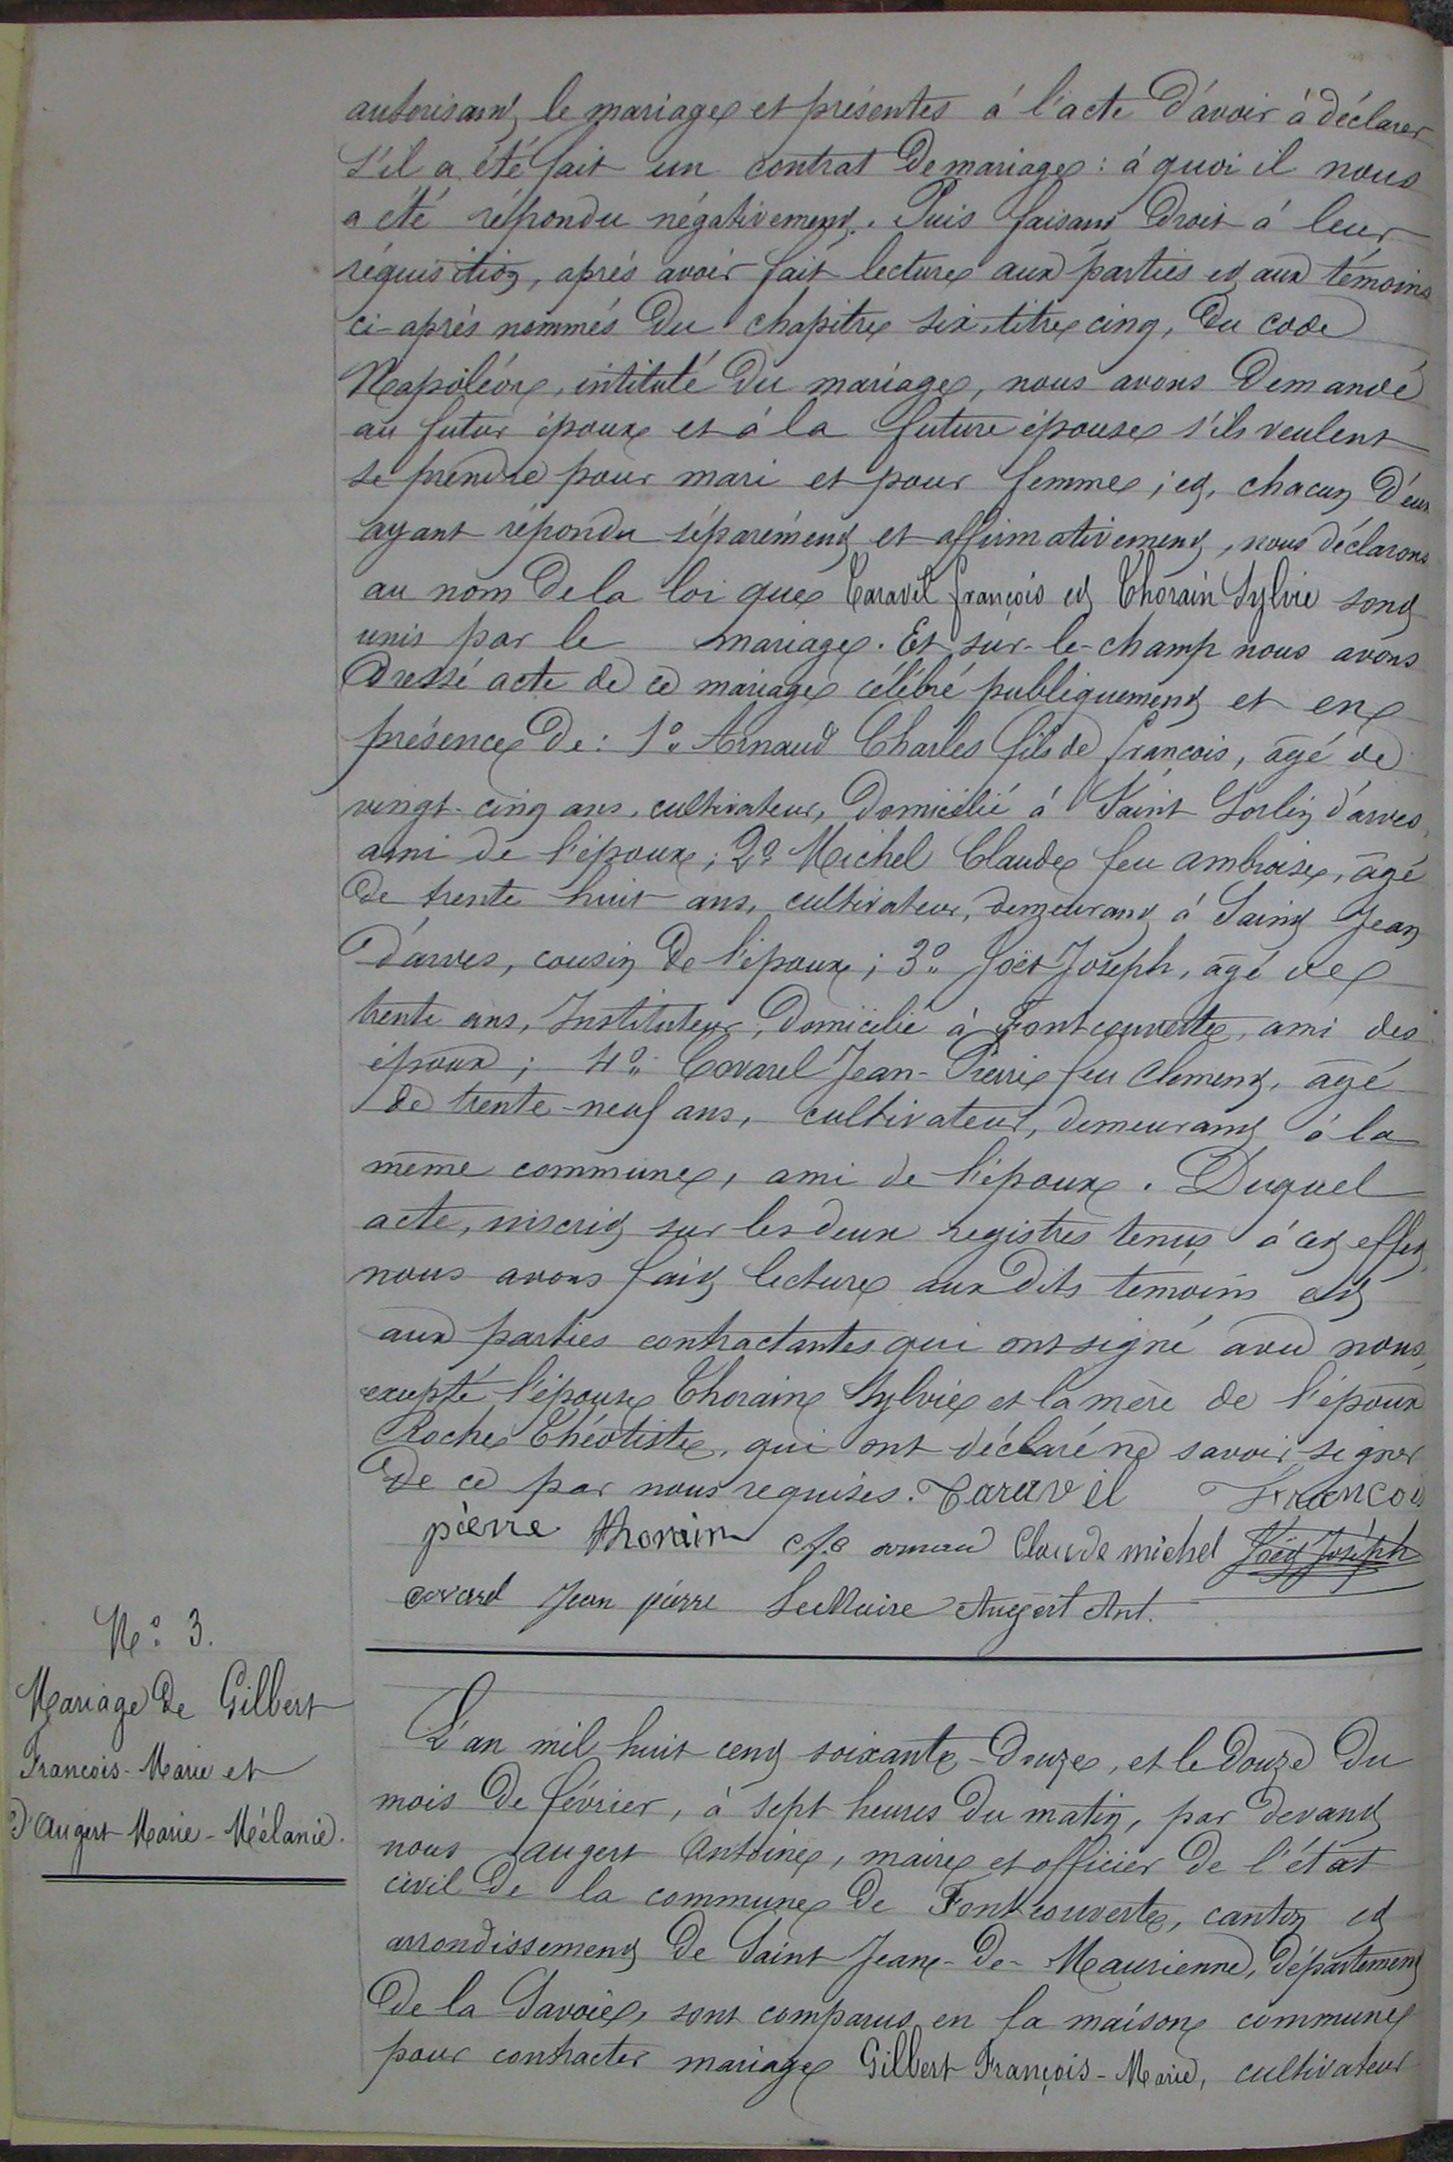 autorisant le mariage et présentes à l'acte d'avoir à déclarer
s'il a été fait un contrat de mariage : à quoi il nous
a été répondu négativement. Puis faisant droit à leur
réquisition, après avoir fait lecture aux parties et aux témoins
ci-après nommés du chapitre six, titre cinq, du code
Napoléon, intitulé du mariage, nous avons demandé
au futur époux et à la future épouse s'ils veulent
se prendre pour mari et pour femme ; et, chacun d'eux
ayant répondu séparément et affirmativement, nous déclarons
au nom de la loi que Taravel françois et Thorain Sylvie sont
unis par le mariage. Et sur-le-champ nous avons
dressé acte de ce mariage célébré publiquement et en
présence de : 1° Arnaud Charles fils de françois, âgé de
vingt-cinq ans, cultivateur, domicilié à Saint Sorlin d'arves,
ami de l'époux ; 2° Michel Claude feu ambroise, âgé
de trente huit ans, cultivateur, demeurant à Saint Jean
d'arves, cousin de l'époux ; 3° Joët Joseph, âgé de
trente ans, Instituteur, domicilié à Fontcouverte, ami des
époux ; 4° Covarel Jean-Pierre feu Clement, âgé
de trente-neuf ans, cultivateur, demeurant à la
même commune, ami de l'époux. Duquel
acte, inscrit sur les deux registres tenus à cet effet,
nous avons fait lecture aux dits témoins et
aux parties contractantes qui ont signé avec nous,
excepté l'épouse Thorain Sylvie et la mère de l'époux
Roche Théotiste, qui ont déclaré ne savoir signer
de ce par nous requises. Taravel François
pierre thorain arnaud Claude michel Joët Joseph
covarel Jean pierre Le Maire Augert Ant.
N° 3.
Mariage de Gilbert
François-Marie et
d'Augert Marie-Mélanie.
L'an mil huit cent soixante-douze, et le douze du
mois de février, à sept heures du matin, par devant
nous augert Antoine, maire et officier de l'état
civil de la commune de Fontcouverte, canton et
arrondissement de Saint Jean-de-Maurienne, département
de la Savoie, sont comparus en la maison commune
pour contracter mariage Gilbert François-Marie, cultivateur